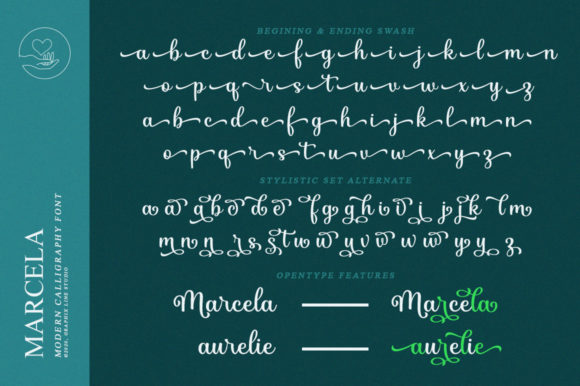 MARCELA
MODERN CALLIGRAPHY FONT
©2020, GRAPHIX LINE STUDIO
BEGINING & ENDING SWASH
a b c d e f g h i j k l m n
o p q r s t u v w x y z
a b c d e f g h i j k l m n
o p q r s t u v w x y z
STYLISTIC SET ALTERNATE
OPENTYPE FEATURES
Marcela Marcela
aurelie aurelie